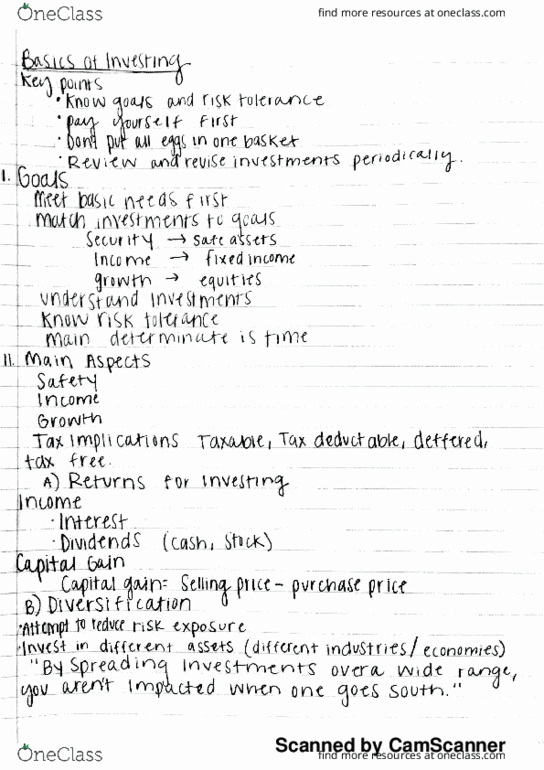 OneClass
find more resources at oneclass.com
Basics of Investing
Key points
• Know goals and risk tolerance
• pay yourself first
• Dont put all eggs in one basket
• Review and revise investments periodically.
I. Goals
Meet basic needs first
Match investments to goals
Security → safe assets
Income → fixed income
growth → equities
understand investments
Know risk tolerance
main determinate is time
II. Main Aspects
Safety
Income
Growth
Tax implications Taxable, Tax deductable, deffered,
tax free.
A) Returns for investing
Income
• Interest
• Dividends (cash, stock)
Capital Gain
Capital gain = Selling price - purchase price
B) Diversification
• Attempt to reduce risk exposure
• Invest in different assets (different industries/economies)
"By spreading investments over a wide range,
you aren't impacted when one goes south."
Scanned by CamScanner
OneClass
find more resources at oneclass.com